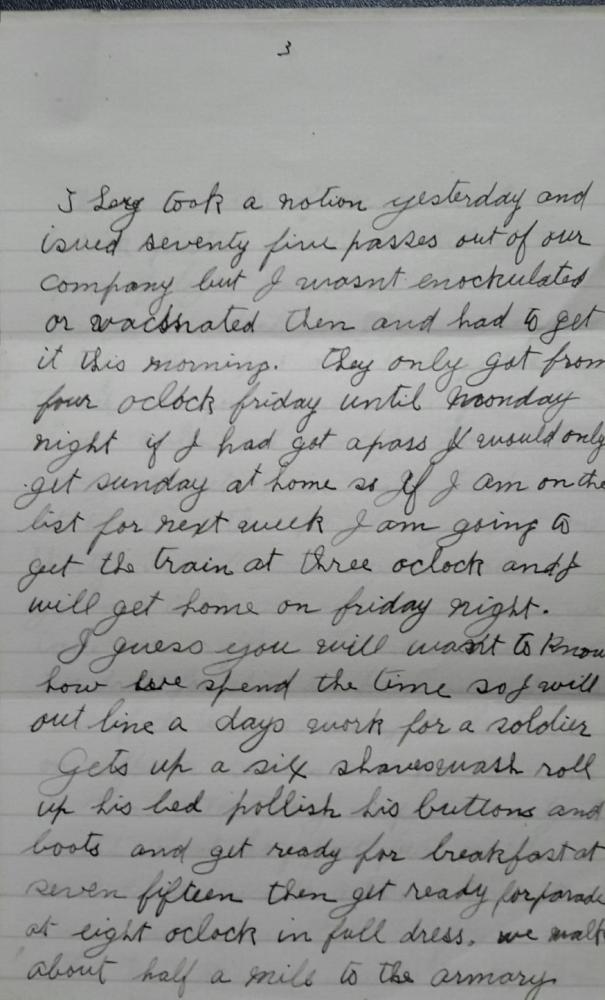 3
took a notion yesterday and
isued seventy five passes out of our
company but I wasnt enockulated
or vacsnated then and had to get
it this morning. they only got from
four oclock friday until monday
night if I had got a pass I would only
get sunday at home so If I am on the
list for next week I am going to
get the train at three oclock and I
will get home on friday night.
I guess you will want to know
how we spend the time so I will
out line a days work for a soldier
Gets up a six shaves wash roll
up his bed pollish his buttons and
boots and get ready for breakfast at
seven fifteen then get ready for parade
at eight oclock in full dress. we walk
about half a mile to the armary